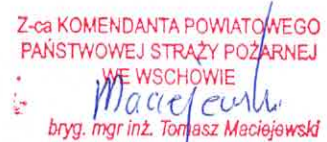 Z-ca KOMENDANTA POWIATOWEGO
PAŃSTWOWEJ STRAŻY POŻARNEJ
WE WSCHOWIE
Maciejewski
bryg. mgr inż. Tomasz Maciejewski